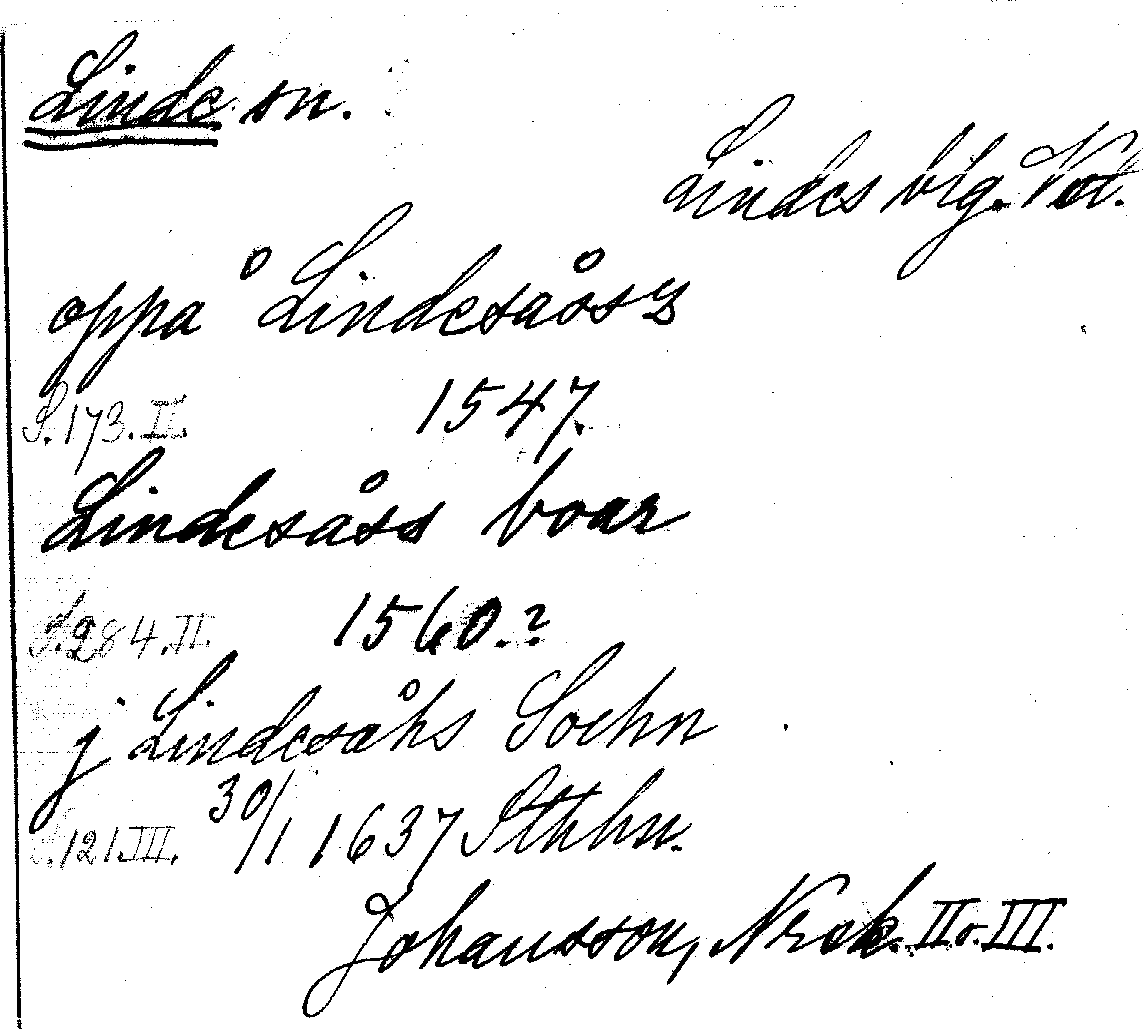 Linde sn.
Lindes blg. Vstl.
oppå Lindesåss
S. 173. II. 1547.
Lindesåss boar
S. 284. II. 1560.?
j Lindesåhs Sochn
S. 121. III. 30/1 1637 Sthhn.
Johansson, Nrsk. II o. III.